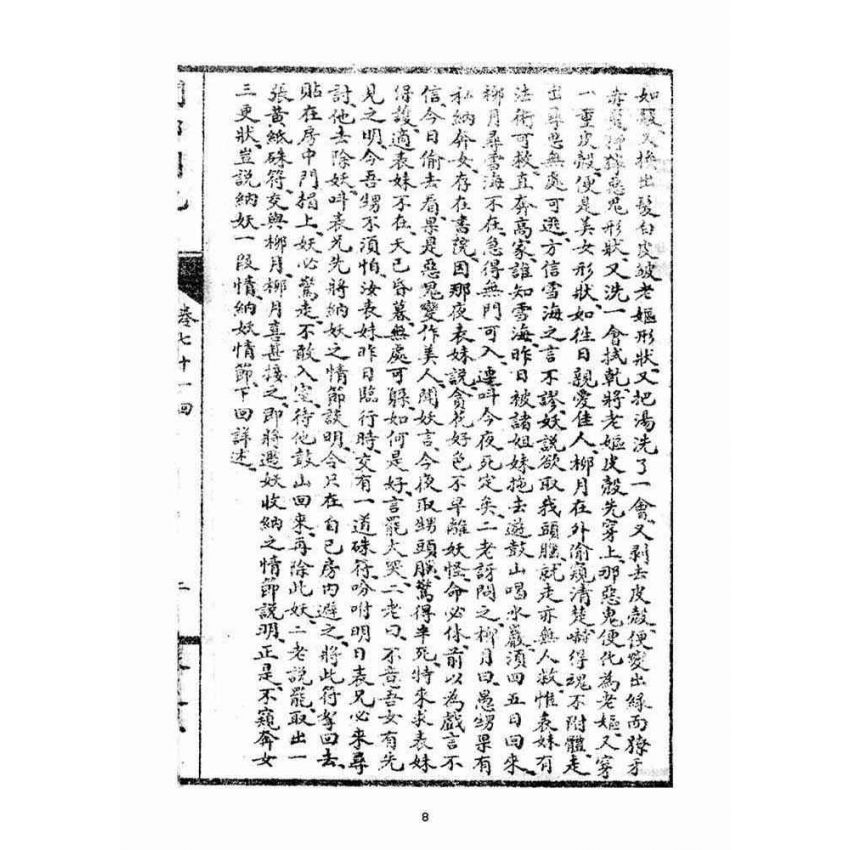 如又捻出髮白皮皱老嫗形狀又把湯洗了一會又剥去皮殼便变出緣面獠牙
惡鬼形狀又洗一會拭乾將老嫗皮殼先穿上那惡鬼便化為老嫗又穿
一重皮殼便是美女形狀如往日親愛佳人柳月在外偷窺清楚嚇得魂不附體走
出尋思無處可逃方信雪海之言不謬妖說欲取我頭臘就走亦無人救惟表妹有
法術可救直奔高家誰知雪海昨日被諸姐妹拖去遊鼓山喝水巖須四五日回來
柳月尋雪海不在急得無門可入連叫今夜死定矣二老訝問之柳月曰愚甥果有
私納奔女存在書院因那夜表妹說貪花好色不早離妖怪命必休前以為戲言不
信今日偷去看果是惡鬼變作美人聞妖言今夜取甥頭臘驚得半死特來求表妹
得護適表妹不在天已昏暮無處可躱如何是好言罷大哭二老曰不意吾女有先
見之明今吾甥不須怕汝表妹昨日臨行時交有一道硃符吩咐明日表兄必來尋
討他去除妖叫表兄先將納妖之情節說明今只在自己房內避之將此符拏回去
貼在房中門楣上妖必驚走不敢入室待他鼓山回來再除此妖二老說罷取出一
張黃紙硃符交與柳月柳月喜甚接之即將遇妖收納之情節說明正是不窺奔女
三更狀豈說納妖一段情納妖情節下回詳述
卷七 十一回
二
8